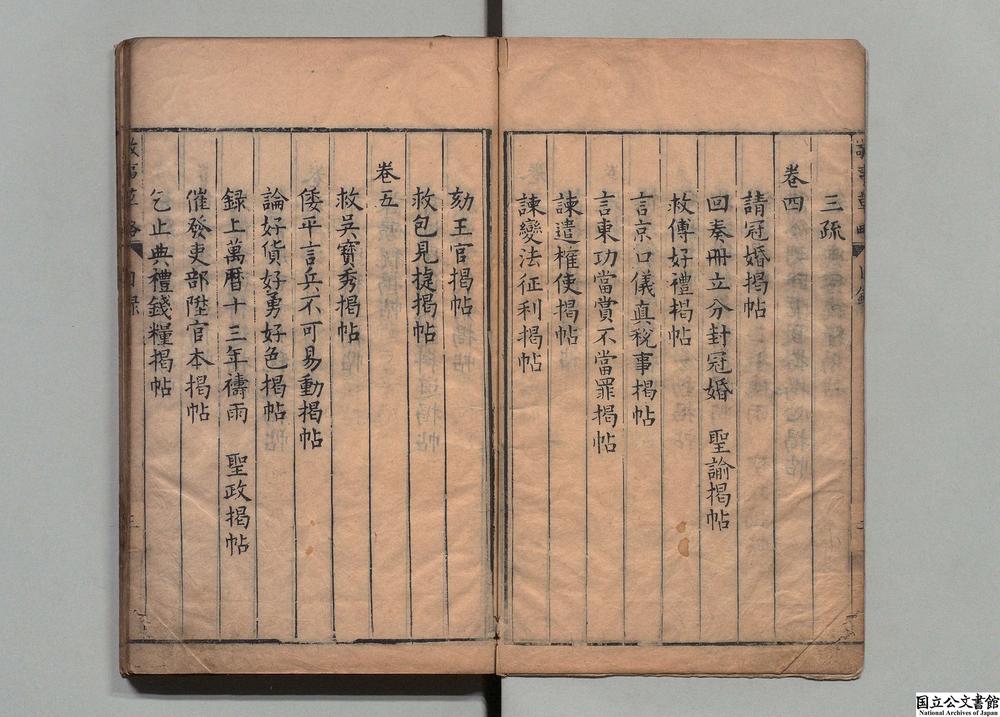 三疏
卷四
請冠婚揭帖
回奏冊立分封冠婚　聖諭揭帖
救傅好禮揭帖
言京口儀眞稅事揭帖
言東功當賞不當罪揭帖
諫遣榷使揭帖
諫變法征利揭帖
劾王官揭帖
救包見捷揭帖
卷五
救吳寶秀揭帖
倭平言兵不可易動揭帖
論好貨好勇好色揭帖
録上萬曆十三年禱雨　聖政揭帖
催發吏部陞官本揭帖
乞止典禮錢糧揭帖
三
国立公文書館
National Archives of Japan